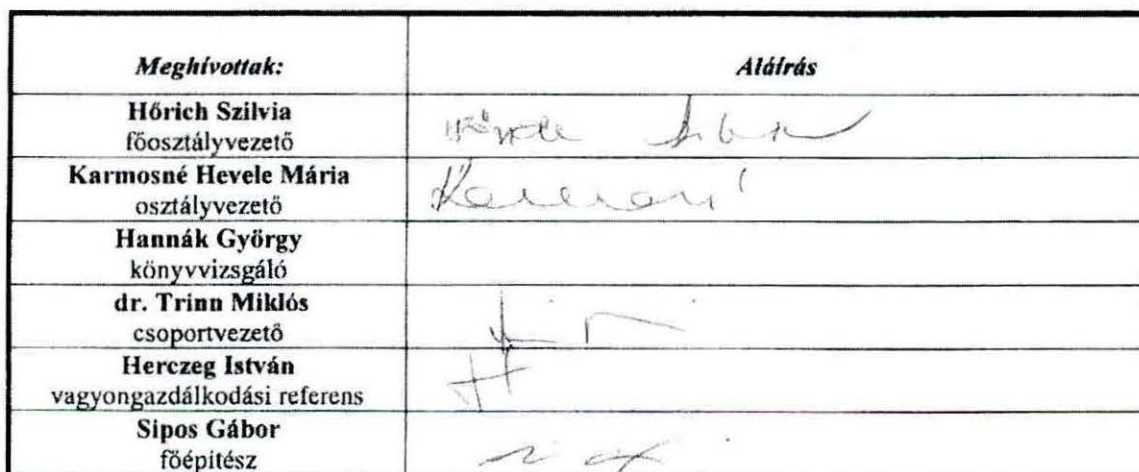 Meghívottak:
Aláírás
Hőrich Szilvia
főosztályvezető
Karmosné Hevele Mária
osztályvezető
Hannák György
könyvvizsgáló
dr. Trinn Miklós
csoportvezető
Herczeg István
vagyongazdálkodási referens
Sipos Gábor
főépítész